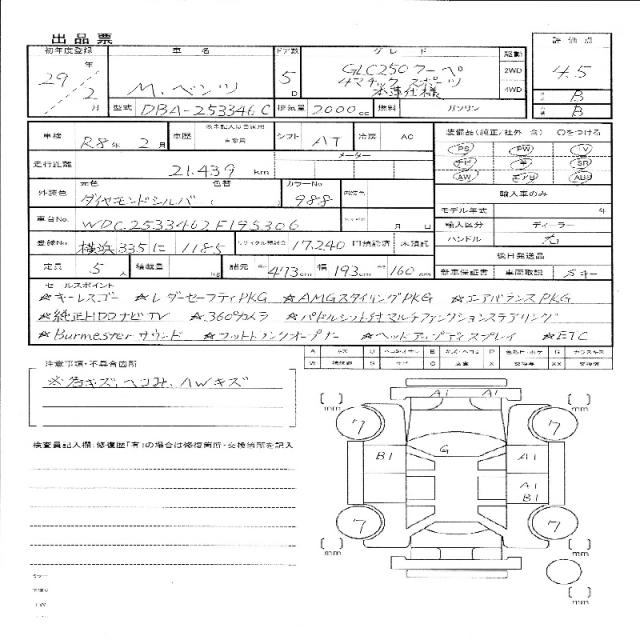 出品票
初年度登録 車名 ドア数 グレード 駆動 評価点
29年 2月 M.ベンツ 5D GLC250クーペ 4マチック スポーツ 本革仕様 2WD 4WD 4.5
B
B
型式 DBA-253346C 排気量 2000cc 燃料 ガソリン
車検 R8年 2月 車歴 自家用 シフト AT 冷房 AC 装備品(純正/社外 含) ○をつける
走行距離 21.439 km メーター PS PW TV
SR
AW エアB ABS
外装色 元色 ダイヤモンドシルバ 色替 カラーNo 988 内装色 輸入車のみ
モデル年式 年
車台No. WDC2533462F195306 月 日 輸入区分 ディーラー
登録No. 横浜 335 に 1185 リサイクル預託金 17.240 円預託済 未預託 ハンドル 右
後日発送品
定員 5人 積載量 kg 諸元 長 473cm 幅 193cm 高 160cm 新車保証書 車両取説 スキー
セールスポイント
☆キーレスゴー ☆レーダーセーフティPKG ☆AMGスタイリングPKG ☆エアバランスPKG
☆純正HDDナビTV ☆360°カメラ ☆パドルシフト付マルチファンクションステアリング
☆Burmesterサウンド ☆フットトランクオープナー ☆ヘッドアップディスプレイ ☆ETC
注意事項・不具合箇所
※各キズ、ヘコみ、AWキズ
検査員記入欄:修復歴「有」の場合は修復箇所・交換箇所を記入
A1 A1
[ ] mm [ ] mm
7 7
G
B1 A1
A1
B1
7 7
[ ] mm [ ] mm
[ ] mm